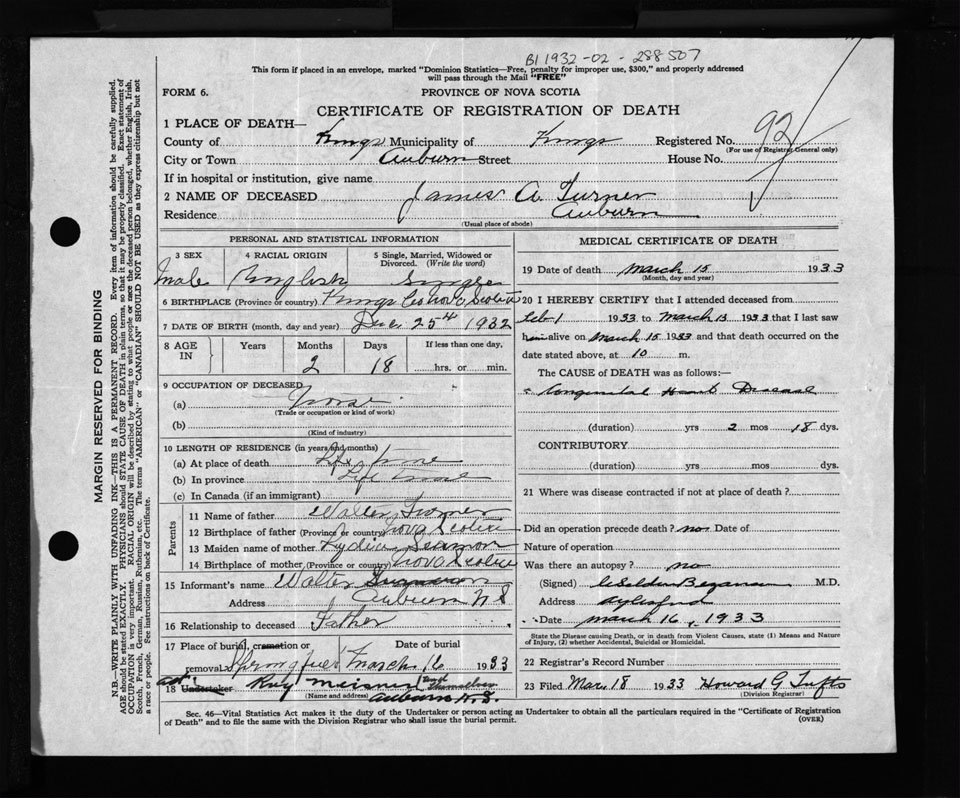 B1 1932-02-288507
This form if placed in an envelope, marked "Dominion Statistics—Free, penalty for improper use, $300," and properly addressed
will pass through the Mail "FREE"
FORM 6.
PROVINCE OF NOVA SCOTIA
CERTIFICATE OF REGISTRATION OF DEATH
1 PLACE OF DEATH—
County of Kings Municipality of Kings Registered No. 92
(For use of Registrar General only)
City or Town Auburn Street House No.
If in hospital or institution, give name
2 NAME OF DECEASED James A. Turner
Residence Auburn
(Usual place of abode)
PERSONAL AND STATISTICAL INFORMATION
3 SEX 4 RACIAL ORIGIN 5 Single, Married, Widowed or Divorced. (Write the word)
Male English Single
6 BIRTHPLACE (Province or country) Kings Co Nova Scotia
7 DATE OF BIRTH (month, day and year) Dec 25th 1932
8 AGE IN Years Months Days If less than one day,
2 18 hrs. or min.
9 OCCUPATION OF DECEASED
(a)
(Trade or occupation or kind of work)
(b)
(Kind of industry)
10 LENGTH OF RESIDENCE (in years and months)
(a) At place of death Life time
(b) In province Life time
(c) In Canada (if an immigrant)
Parents
11 Name of father Walter Turner
12 Birthplace of father (Province or country) Nova Scotia
13 Maiden name of mother Lydia
14 Birthplace of mother (Province or country) Nova Scotia
15 Informant's name Walter
Address Auburn N S
16 Relationship to deceased Father
17 Place of burial, cremation or removal Date of burial
March 16 1933
18 Undertaker Meisner
(Name and address) Auburn N.S.
MEDICAL CERTIFICATE OF DEATH
19 Date of death March 15 1933
(Month, day and year)
20 I HEREBY CERTIFY that I attended deceased from
Feb 1 1933 to March 15 1933 that I last saw
him alive on March 15 1933 and that death occurred on the
date stated above, at 10 m.
The CAUSE OF DEATH was as follows:—
Congenital Heart Disease
(duration) yrs 2 mos 18 dys.
CONTRIBUTORY
(duration) yrs mos dys.
21 Where was disease contracted if not at place of death?
Did an operation precede death? no Date of
Nature of operation
Was there an autopsy? no
(Signed) M.D.
Address Aylesford
Date March 16, 1933
State the Disease causing Death, or in death from Violent Causes, state (1) Means and Nature
of Injury, (2) whether Accidental, Suicidal or Homicidal.
22 Registrar's Record Number
23 Filed Mar. 18 1933 Howard G Tufts
(Division Registrar)
Sec. 46—Vital Statistics Act makes it the duty of the Undertaker or person acting as Undertaker to obtain all the particulars required in the "Certificate of Registration
of Death" and to file the same with the Division Registrar who shall issue the burial permit.
(OVER)
MARGIN RESERVED FOR BINDING
N.B.—WRITE PLAINLY WITH UNFADING INK—THIS IS A PERMANENT RECORD. Every item of information should be carefully supplied.
AGE should be stated EXACTLY. PHYSICIANS should STATE CAUSE OF DEATH in plain terms, so that it may be properly classified. Exact statement of
OCCUPATION is very important. RACIAL ORIGIN will be described by stating to what people or race the deceased person belonged, whether English, Irish,
Scotch, French, German, Russian, Ruthenian, etc. The terms "AMERICAN" or "CANADIAN" SHOULD NOT BE USED as they express citizenship but not
a race or people. See instructions on back of Certificate.